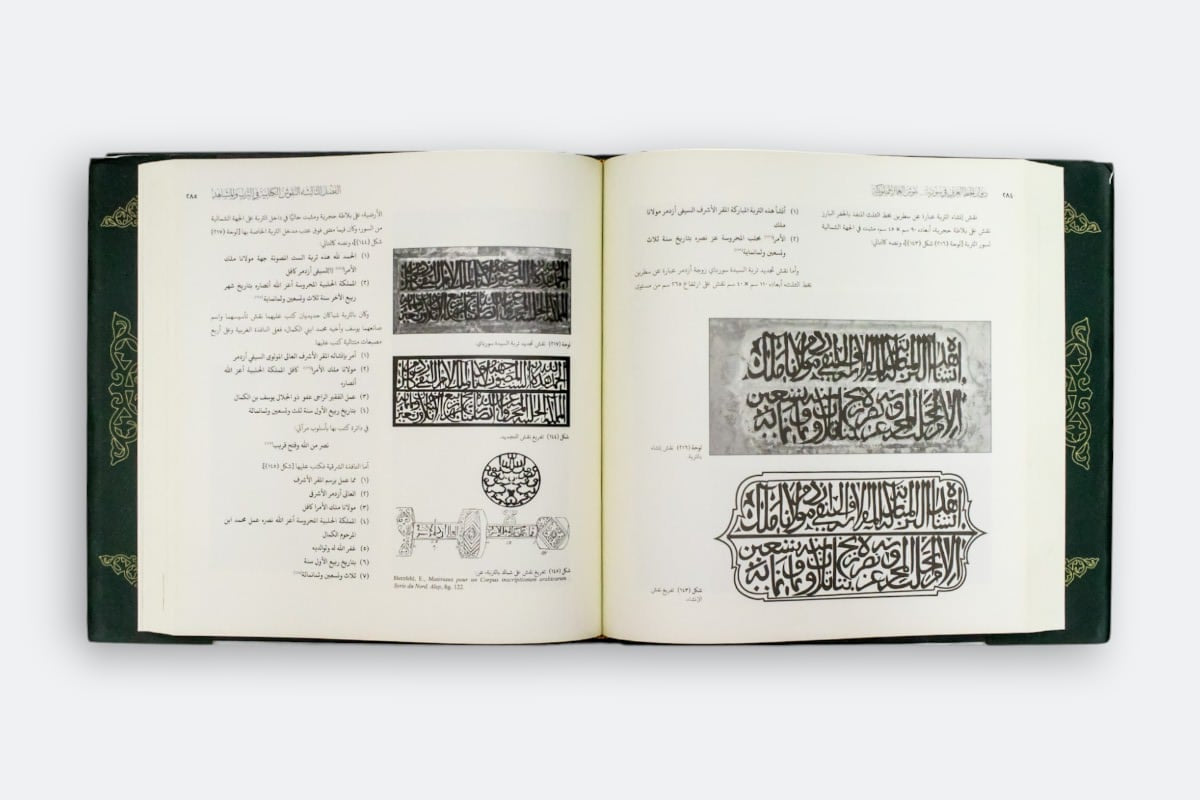 ٢٨٤
ديوان الخط العربي في سوريا... نقوش العمائر المملوكية
نقش إنشاء التربة عبارة عن سطرين بخط الثلث المنفذ بالحفر البارز
نقش على بلاطة حجرية، أبعاده ٩٠ سم × ٤٥ سم، مثبت في الجهة الشمالية
لسور التربة [لوحة (٢١٦) شكل (١٤٣)]، ونصه كالتالي:
(١) أنشأ هذه التربة المباركة المقر الأشرف السيفي أزدمر مولانا
ملك
(٢) الأمرا بحلب المحروسة عز نصره بتاريخ سنة ثلاث
وتسعين وثمانماية
وأما نقش تجديد تربة السيدة سورباي زوجة أزدمر عبارة عن سطرين
بخط الثلث، أبعاده ١١٠ سم × ٤٠ سم نقش على ارتفاع ٢٦٥ سم من مستوى
لوحة (٢١٦) نقش إنشاء
بالتربة.
شكل (١٤٣) تفريغ نقش
الإنشاء.
الفصل الثالث: النقوش الكتابية في الترب والمشاهد
٢٨٥
الأرضية، على بلاطة حجرية ومثبت حاليًا في داخل التربة على الجهة الشمالية
من السور، وكان فيما مضى فوق عتب مدخل التربة الخاصة بها [لوحة (٢١٧)
شكل (١٤٤)]، ونصه كالتالي:
(١) الحمد لله هذه تربة الست المصونة جهة مولانا ملك
الأمرا السيفي أزدمر كافل
(٢) المملكة الحلبية المحروسة أعز الله أنصاره بتاريخ شهر
ربيع الآخر سنة ثلاث وتسعين وثمانماية
وكان بالتربة شباكان حديديان كتب عليهما نقش تأسيسهما واسم
صانعهما يوسف وأخيه محمد ابني الكمال، فعلى النافذة الغربية وعلى أربع
مصبعات متتالية كتب عليها:
(١) أمر بإنشائه المقر الأشرف العالي المولوي السيفي أزدمر
(٢) مولانا ملك الأمرا كافل المملكة الحلبية أعز الله
أنصاره
(٣) عمل الفقير الراجي عفو ذو الجلال يوسف بن الكمال
(٤) بتاريخ ربيع الأول سنة ثلث وتسعين وثمانمائة
في دائرة كتب بها بأسلوب مرآتي:
نصر من الله وفتح قريب
أما النافذة الشرقية فكتب عليها [شكل (١٤٥)]:
(١) مما عمل برسم المقر الأشرف
(٢) العالي أزدمر الأشرفي
(٣) مولانا ملك الأمرا كافل
(٤) المملكة الحلبية المحروسة أعز الله نصره عمل محمد ابن
المرحوم الكمال
(٥) غفر الله له ولوالديه
(٦) بتاريخ ربيع الأول سنة
(٧) ثلاث وتسعين وثمانمائة
لوحة (٢١٧) نقش تجديد تربة السيدة سورباي.
شكل (١٤٤) تفريغ نقش التجديد.
شكل (١٤٥) تفريغ نقش على شباك بالتربة، عن:
Herzfeld, E., Matériaux pour un Corpus inscriptionum arabicarum
Syrie du Nord. Alep, fig. 122.